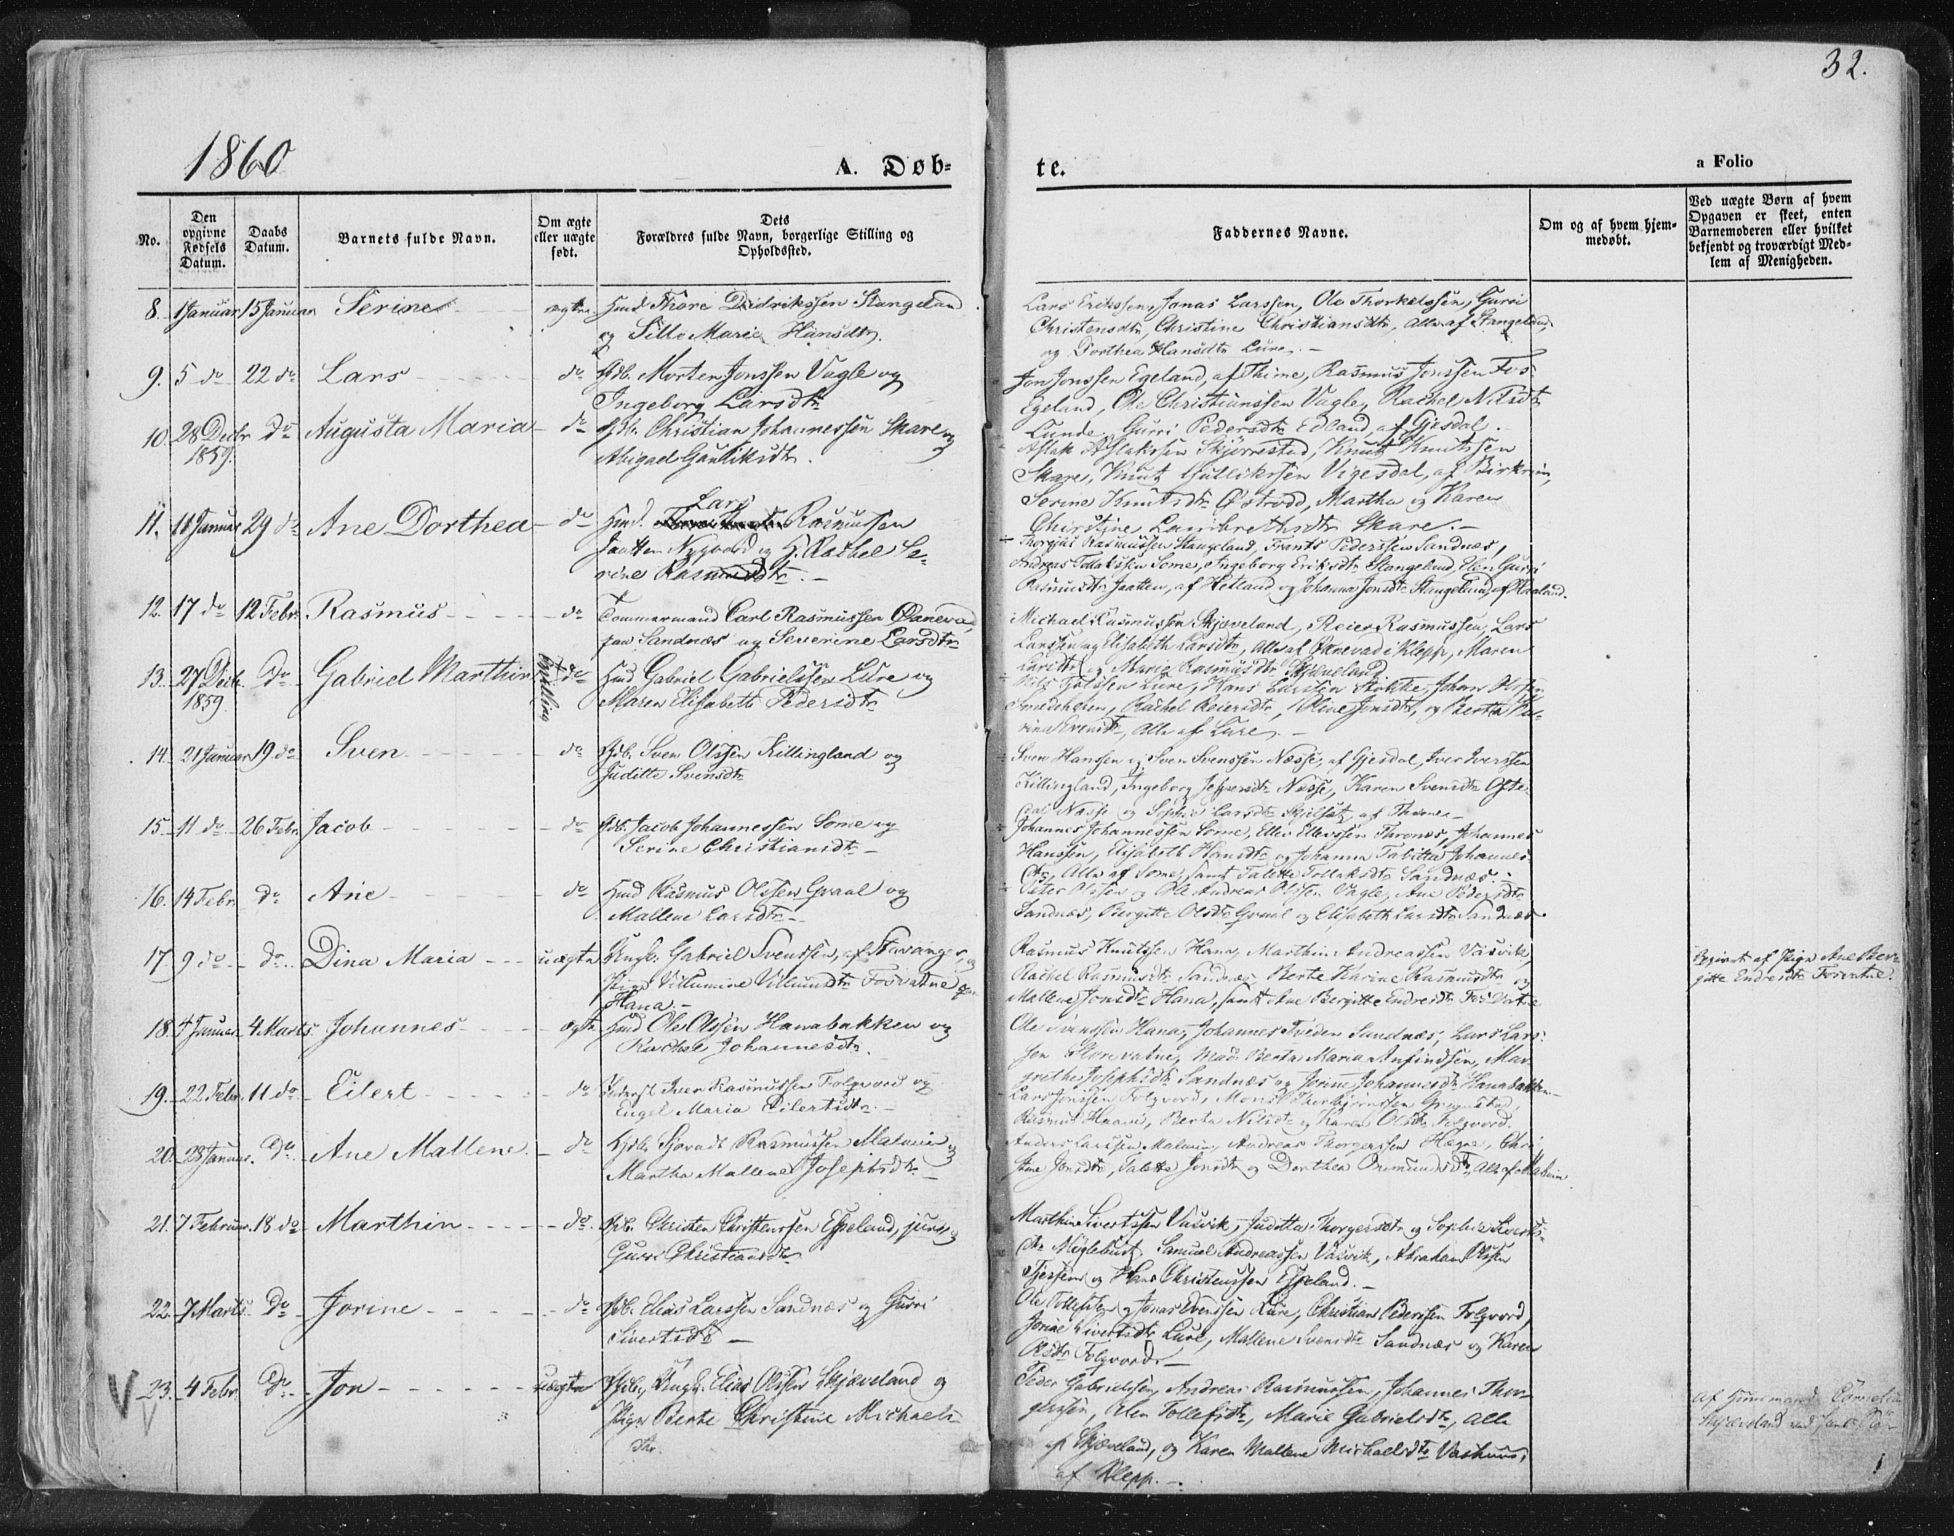 32.
1860
A. Døb-
te.
a Folio
No.
Den opgivne Fødsels Datum.
Daabs Datum.
Barnets fulde Navn.
Om ægte eller uægte født.
Dets Forældres fulde Navn, borgerlige Stilling og Opholdssted.
Faddernes Navne.
Om og af hvem hjemmedøbt.
Ved uægte Børn af hvem Opgaven er skeet, enten Barnemoderen eller hvilket bekjendt og troværdigt Medlem af Menigheden.
8. 1 Januar 15 Januar Serine ægte Hmd Thore Didrikssen Stangeland
og Sille Maria Hansdtr.
Lars Erikssen, Jonas Larssen, Ole Thorkelssen, Gurri
Christensdtr, Christine Christiansdtr, alle af Stangeland,
og Dorthea Hansdtr Lure. –
9. 5 do 22 do Lars do Gdb. Morten Jonssen Vagle og
Ingeborg Larsdtr
Jon Jonssen Egeland, af Thime, Rasmus Jonssen Fos
Egeland, Ole Christianssen Vagle, Rachel Nilsdtr
Lunde, Gurri Pedersdtr Edland, af Gjesdal.
10. 28 Decbr 1859. do Augusta Maria do Gdb. Christian Johannessen Skare og
Abigael Gautiksdtr.
Aslak Aslakssen Skjørrestad, Knut Knutssen
Skare, Knut Gullikssen Vigesdal, af Birkrem,
Serine Knutsdtr Østrød, Martha og Karen
Christine Lambrethsdtr Skare. –
11. 11 Januar 29 do Ane Dorthea do Hmd. Lars Rasmussen
Jaatten Nygaard og H. Rachel Se-
rine Rasmusdtr. –
Thorgius Rasmussen Stangeland, Frants Pederssen Sandnæs,
Andreas Tollakssen Some, Ingeborg Eriksdtr Stangeland, Elen Gurri
Rasmusdtr Jaatten, af Hetland og Johanna Jonsdtr Stangeland, af Haaland.
12. 17 do 12 Febr. Rasmus do Tømmermand Carl Rasmussen Øxnevad
paa Sandnæs og Severine Larsdtr
Michael Rasmussen Skjæveland, Reier Rasmussen, Lars
Larssen og Elisabeth Larsdtr, alle af Øxnevad i Klepp, Maren
Larsdtr og Maria Rasmusdtr Skjæveland.
13. 27 Decbr. 1859. do Gabriel Marthin Tvilling do Hmd Gabriel Gabrielssen Lure og
Maren Elisabeth Pedersdtr
Rachel Reiersdtr, Oline Jonsdtr, og Bertha
alle af Lure. –
14. 21 Januar 19 do Sven do Gdb. Sven Olssen Killingland og
Juditte Svensdtr
Sven Hanssen og Sven Svenssen Næsse, af Gjesdal, Iver Iverssen
Killingland, Ingeborg Jespersdtr Næsse, Karen Svensdtr
Næsse og Sophie Larsdtr af Thime –
15. 11 do 26 Febr. Jacob do Gdb. Jacob Johannessen Some og
Serine Christiansdtr –
Johannes Johannessen Some, Elles Ellevssen Thrones, Johannes
Hanssen, Elisabeth Hansdtr og Johanna Tabitta Johannes-
dtr, alle af Some, samt Talette Tollaksdtr Sandnæs. –
16. 14 Febr. do Ane do Hmd Rasmus Olssen Graal og
Mallene Larsdtr –
Peter Olssen og Ole Andreas Olssen Vagle, Ane Pedersdtr
Sandnæs, Bergitte Olsdtr Graal og Elisabeth Larsdtr Sandnæs.
17. 9 do do Dina Maria uægte Ungk. Gabriel Svenssen, af Stavanger, og
Pige Villumine Villumsdtr Forvatne paa
Hana. –
Rasmus Knutssen Hana, Marthin Andreassen Vasvik,
Rachel Rasmusdtr Sandnæs, Berte Karine Rasmusdtr og
Mallene Jonsdtr Hana, samt Ane Bergitte Endresdtr Forvatne
Opgivet af Pige Ane Ber-
gitte Endresdtr Forvatne.
18. 4 Januar 4 Marts Johannes ægte Hmd Ole Olssen Hanabakken og
Rachel Johannesdtr.
Ole Svenssen Hana, Johannes Tveden Sandnæs, Lars Lars-
sen Storevatne, Mad. Berta Maria Anfindsen, Mar-
grethe Josephsdtr Sandnæs og Jorine Johannesdtr Hanabakken –
19. 22 Febr. 11 do Eilert do Iver Rasmussen Folgvord og
Engel Maria Eilertsdtr. –
Lars Jonssen Folgvord, Mons Thorbjørnssen
Rasmus Berta Nilsdtr og Karen Olsdtr Folgvord.
20. 28 Januar. do Ane Mallene do Gdb. Sjovadt Rasmussen Malmin og
Martha Mallene Josephsdtr. –
Anders Larssen Malmin, Andreas Thorgerssen Høgne, Chri-
stine Jonsdtr, Talette Jonsdtr og Dorthea Ommundsdtr, alle af Malmin.
21. 7 Februar. 18 do Marthin do Gdb. Christen Christenssen Espeland, jun: og
Gurri Christiansdtr
Marthin Sivertssen Vasvik, Juditta Thorgersdtr og Sophie Siverts-
dtr Møglebust, Samuel Andreassen Vasvik, Abraham Olssen
og Hans Christenssen Espeland. –
22. 7 Marts do Jorine do Gdb. Elias Larssen Sandnæs og Gurri
Sivertsdtr –
Ole Tollefssen og Jonas Svenssen Lure, Christian Pederssen Folgvord,
Jorine Sivertsdtr Lure, Mallene Svensdtr Sandnæs og Karen
Olsdtr Folgvord. –
23. 4 Febr. do Jon uægte Ungk. Elias Olssen Skjæveland og
Pige Berte Christine Michaels-
dtr.
Peder Gabrielssen, Andreas Rasmussen, Johannes Thor-
gerssen, Elen Tollefsdtr, Marie Gabrielsdtr, alle
af Skjæveland, og Karen Mallene Michaelsdtr Vashuus,
af Klepp. –
Af Huusmand
Skjæveland